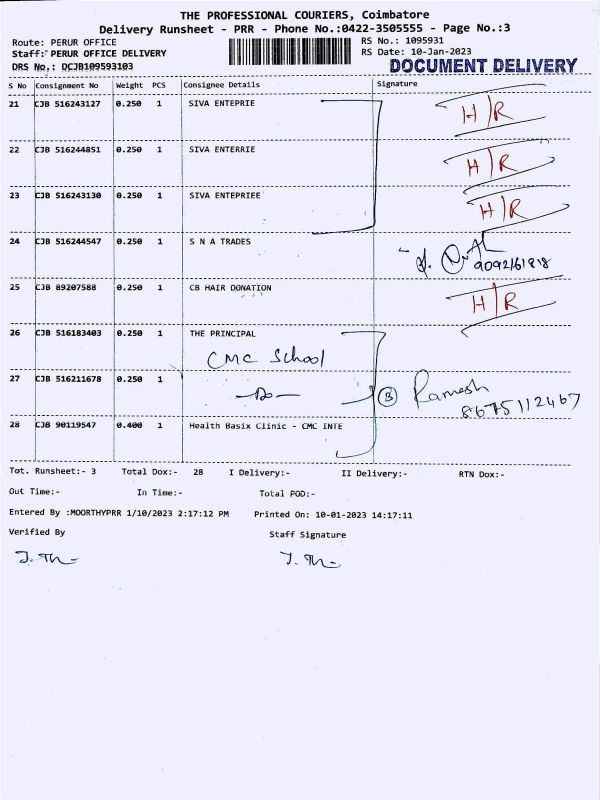 THE PROFESSIONAL COURIERS, Coimbatore
Delivery Runsheet - PRR - Phone No.:0422-3505555 - Page No.:3
Route: PERUR OFFICE RS No.: 1095931
Staff: PERUR OFFICE DELIVERY RS Date: 10-Jan-2023
DRS No.: DCJB109593103 DOCUMENT DELIVERY
S No Consignment No Weight PCS Consignee Details Signature
21 CJB 516243127 0.250 1 SIVA ENTEPRIE H/R
22 CJB 516244851 0.250 1 SIVA ENTERRIE H/R
23 CJB 516243130 0.250 1 SIVA ENTEPRIEE H/R
24 CJB 516244547 0.250 1 S N A TRADES
9092161818
25 CJB 89207588 0.250 1 CB HAIR DONATION H/R
26 CJB 516183403 0.250 1 THE PRINCIPAL
CMC School
27 CJB 516211678 0.250 1
-Do- 3 Ramesh
8675112467
28 CJB 90119547 0.400 1 Health Basix Clinic - CMC INTE
Tot. Runsheet:- 3 Total Dox:- 28 I Delivery:- II Delivery:- RTN Dox:-
Out Time:- In Time:- Total POD:-
Entered By :MOORTHYPRR 1/10/2023 2:17:12 PM Printed On: 10-01-2023 14:17:11
Verified By Staff Signature